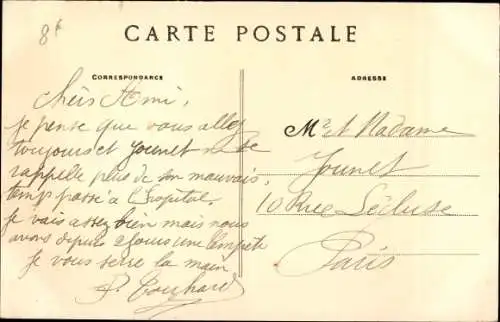 8f
CARTE POSTALE
CORRESPONDANCE
ADRESSE
Chers Ami,
je pense que vous allez
toujours et Jounet ne se
rappelle plus de son mauvais
temps passé à l'hopital.
Je vais assez bien mais nous
avons depuis 2 jours une tempête
je vous serre la main
Mr et Madame
Jounet
10 Rue Lécluse
Paris